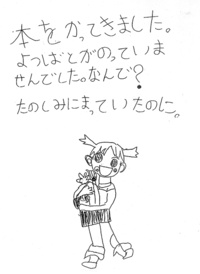 本をかってきました。
よつばとがのっていま
せんでした。なんで?
たのしみにまっていたのに。